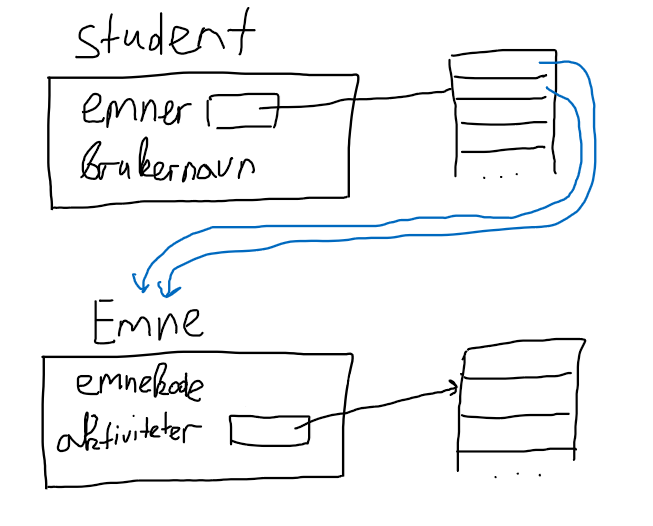 student
emner
brukernavn
...
Emne
emnekode
aktiviteter
...